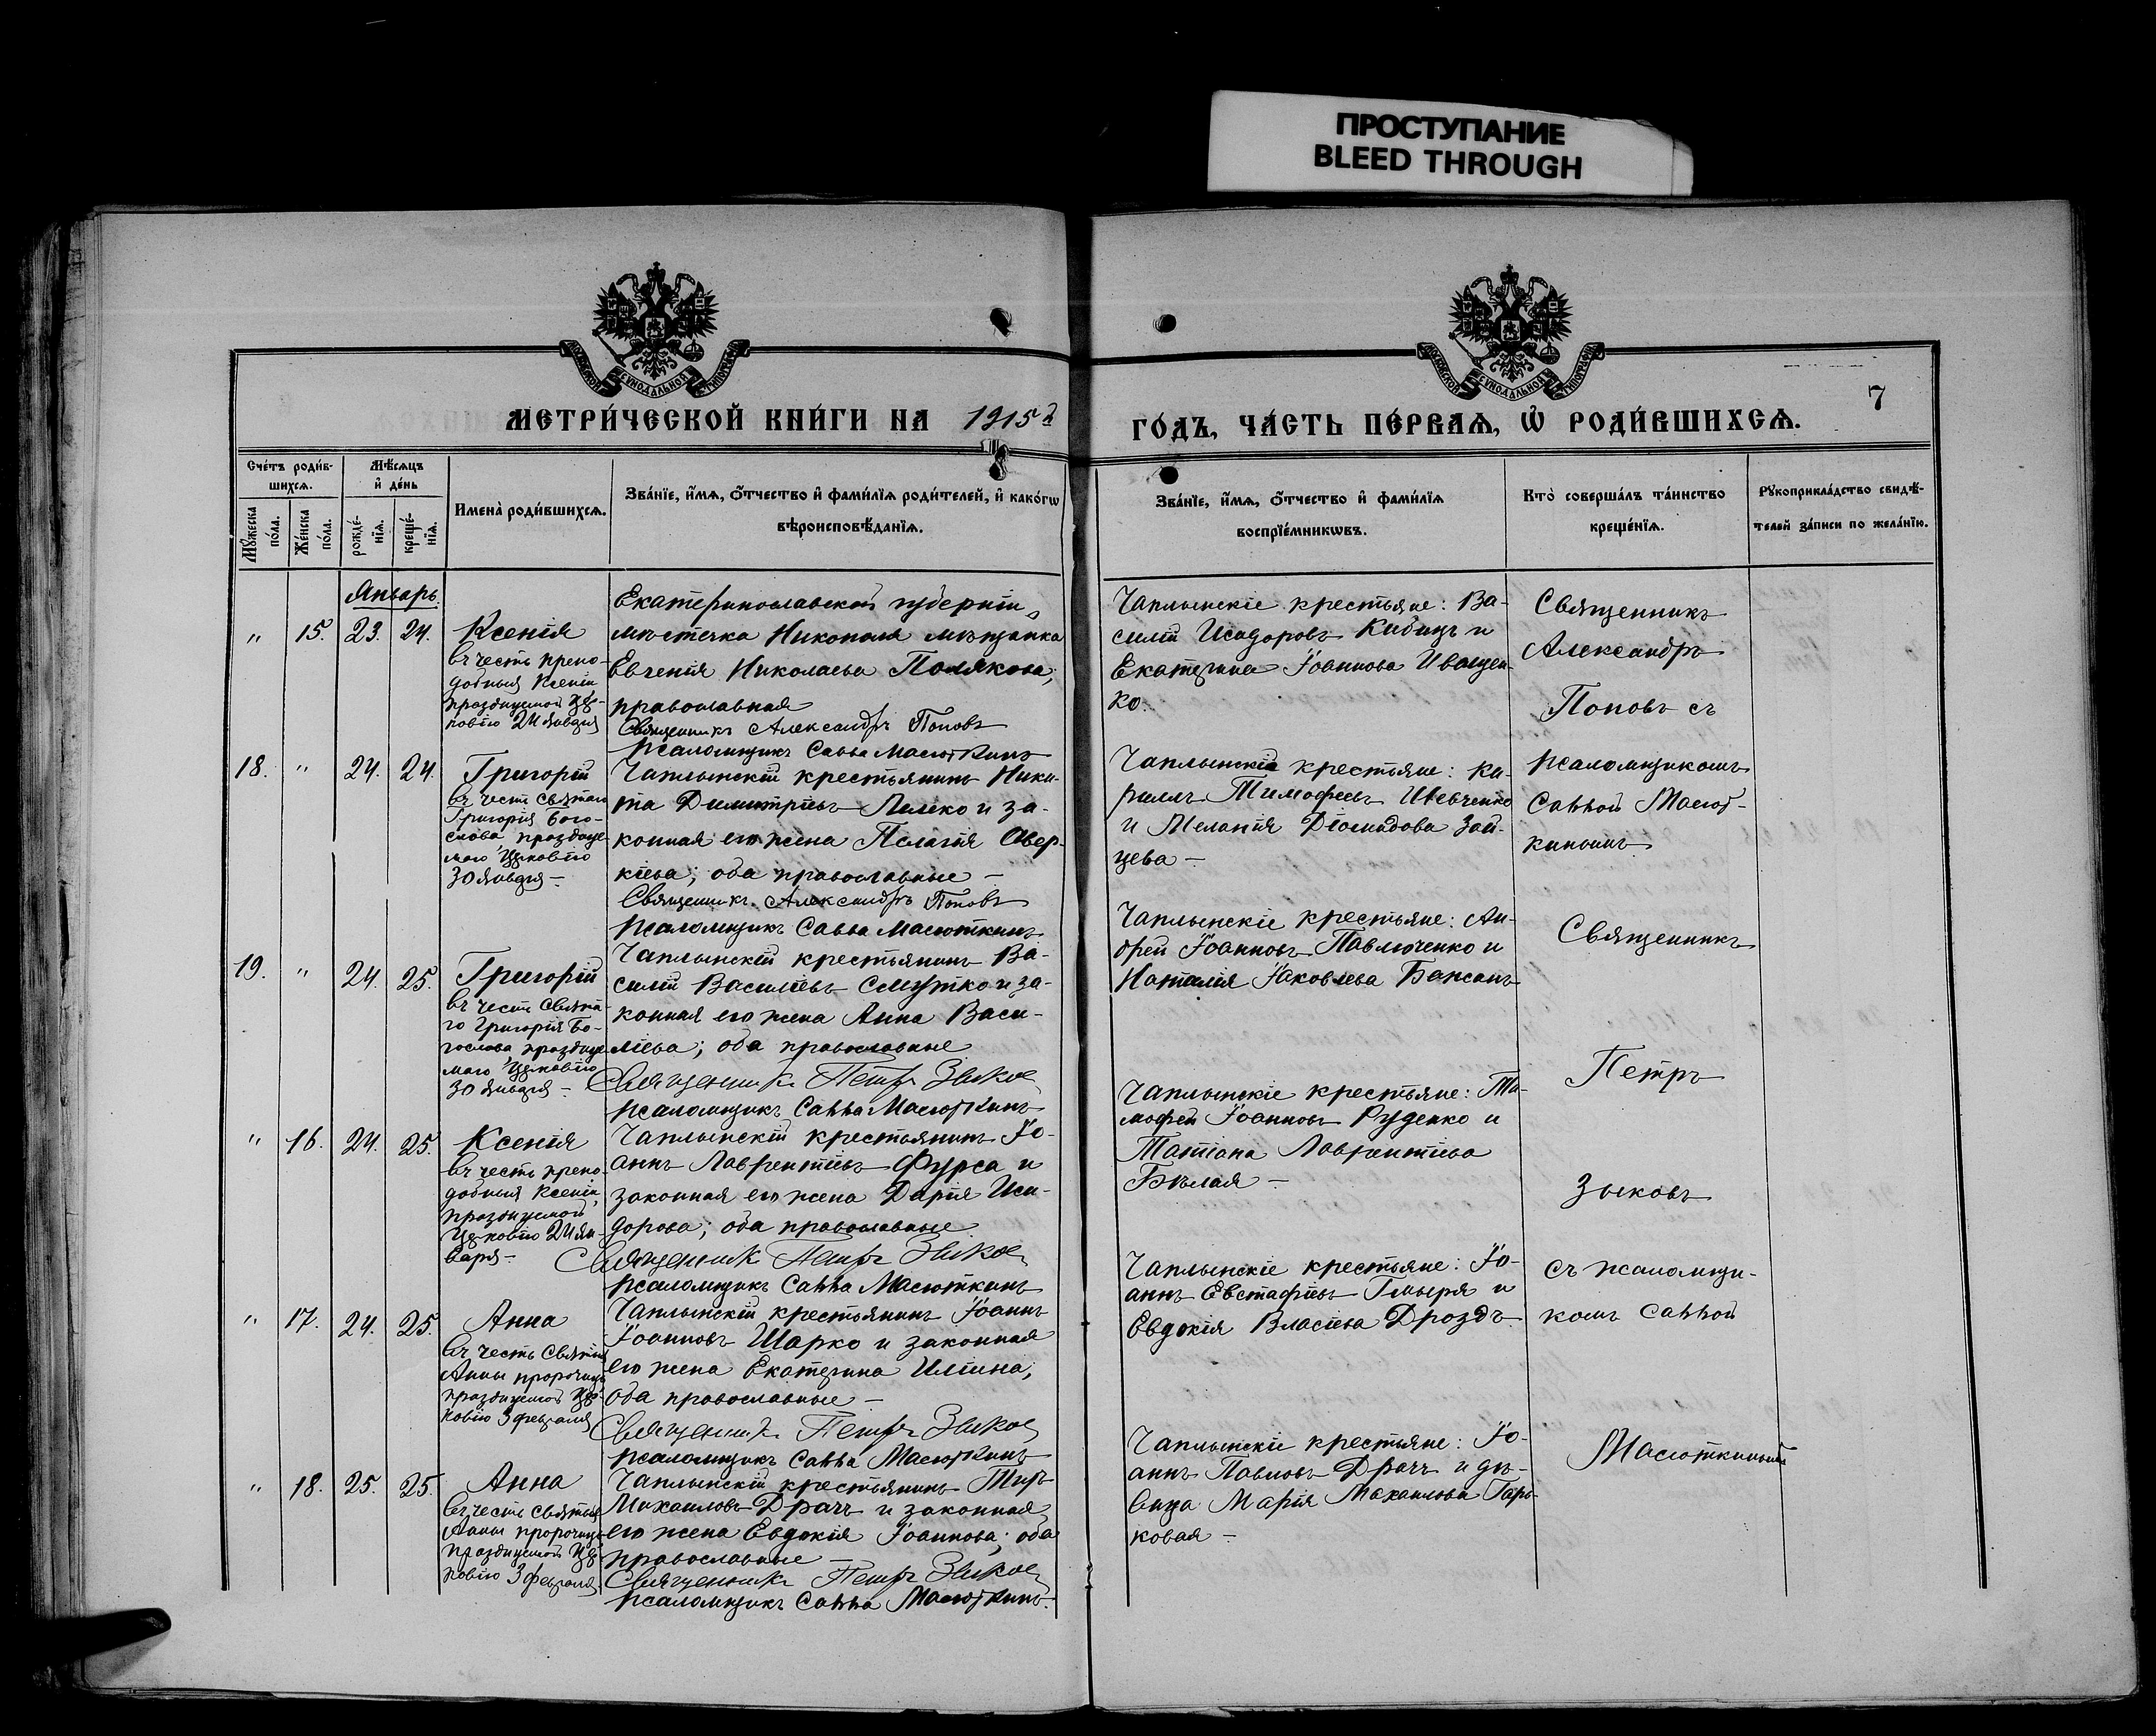 ПРОСТУПАНИЕ
BLEED THROUGH
МЕТРИ́ЧЕСКОЙ КНИ́ГИ НА 1915 й
ГО́ДЪ, ЧА́СТЬ ПЕ́РВАѦ, Ѡ҆ РОДИ́ВШИХСѦ.
7
Сче́тъ роди́в-
шихсѧ.
Мѣ́сѧцъ
и҆ де́нь
Мꙋ́жеска по́ла.
Же́нска по́ла.
рожде́-
нїѧ.
креще́-
нїѧ.
Имена̀ роди́вшихсѧ.
Зва́нїе, и҆́мѧ, ѻ҆́тчество и҆ фами́лїѧ роди́телей, и҆ како́гѡ
вѣроисповѣ́данїѧ.
Зва́нїе, и҆́мѧ, ѻ҆́тчество и҆ фами́лїѧ
воспрїе́мникѡвъ.
Кто̀ соверша́лъ та́инство
креще́нїѧ.
Рꙋкоприкла́дство свидѣ́-
телей за́писи по жела́нїю.
Январь.
" 15. 23. 24. Ксенія
въ честь препо-
добныя Ксеніи
празднуемой Цер-
ковію 24 января
Екатеринославской губерніи,
мѣстечка Никополя мѣщанка
Евгенія Николаева Полякова;
православная
Священникъ Александръ Поповъ
Псаломщикъ Савва Масюткинъ
Чаплынскіе крестьяне: Ва-
силій Исидоровъ Кибицъ и
Екатерина Іоаннова Иващен-
ко.
Священникъ
Александръ
Поповъ съ
псаломщикомъ
Саввой Масют-
кинымъ
18. " 24. 24. Григорій
въ честь Святаго
Григорія Бого-
слова, празднуе-
маго Церковію
30 января –
Чаплынскій крестьянинъ Ники-
та Димитріевъ Лелеко и за-
конная его жена Пелагія Авер-
кіева; оба православные –
Священникъ Александръ Поповъ
Псаломщикъ Савва Масюткинъ
Чаплынскіе крестьяне: Ки-
риллъ Тимофеевъ Шевченко
и Меланія Діомидова Зай-
цева –
19. " 24. 25. Григорій
въ честь Свята-
го Григорія Бо-
гослова, празднуе-
маго Церковію
30 января –
Чаплынскій крестьянинъ Ва-
силій Василіевъ Смутко и за-
конная его жена Анна Васи-
ліева; оба православные
Священникъ Петръ Зыковъ
Псаломщикъ Савва Масюткинъ
Чаплынскіе крестьяне: Ан-
дрей Іоанновъ Павлюченко и
Наталія Іаковлева Бажанъ
Священникъ
Петръ
Зыковъ
съ псаломщи-
комъ Саввой
Масюткинымъ
" 16. 24. 25. Ксенія
въ честь препо-
добныя Ксеніи,
празднуемой
Церковію 24 ян-
варя –
Чаплынскій крестьянинъ Іо-
аннъ Лаврентіевъ Фурса и
законная его жена Дарія Иси-
дорова; оба православные
Священникъ Петръ Зыковъ
Псаломщикъ Савва Масюткинъ
Чаплынскіе крестьяне: Ти-
мофей Іоанновъ Руденко и
Татіана Лаврентіева
Бѣлая –
" 17. 24. 25. Анна
въ честь Святыя
Анны пророчицы
празднуемой Цер-
ковію 3 февраля
Чаплынскій крестьянинъ Іоаннъ
Іоанновъ Шарко и законная
его жена Екатерина Иліина;
оба православные –
Священникъ Петръ Зыковъ
Псаломщикъ Савва Масюткинъ
Чаплынскіе крестьяне: Іо-
аннъ Евстафіевъ Гмыря и
Евдокія Власіева Дроздъ
" 18. 25. 25. Анна
въ честь Святыя
Анны пророчицы
празднуемой Цер-
ковію 3 февраля
Чаплынскій крестьянинъ Тиръ
Михаиловъ Драчъ и законная
его жена Евдокія Іоаннова; оба
православные –
Священникъ Петръ Зыковъ
Псаломщикъ Савва Масюткинъ.
Чаплынскіе крестьяне: Іо-
аннъ Павловъ Драчъ и дѣ-
вица Марія Михаилова Гарь-
ковая –